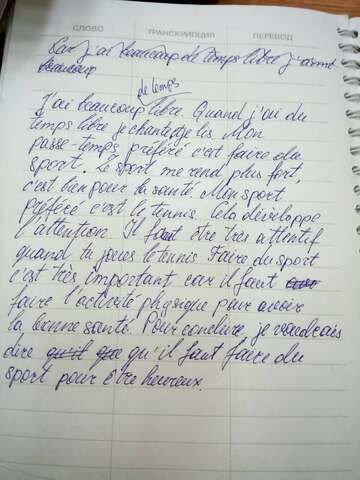 СЛОВО ТРАНСКРИПЦИЯ ПЕРЕВОД
Car j'ai beaucoup de temps libre j'
beaucoup
de temps
J'ai beaucoup libre. Quand j'ai du
temps libre je chante je lis. Mon
passe-temps préféré c'est faire du
sport. Le sport me rend plus fort,
c'est bien pour la santé. Mon sport
préféré c'est le tennis. Cela développe
l'attention. Il faut être très attentif
quand tu joues le tennis. Faire du sport
c'est très important car il faut
faire l'activité physique pour avoir
la bonne santé. Pour conclure je voudrais
dire qu'il faut faire du
sport pour être heureux.